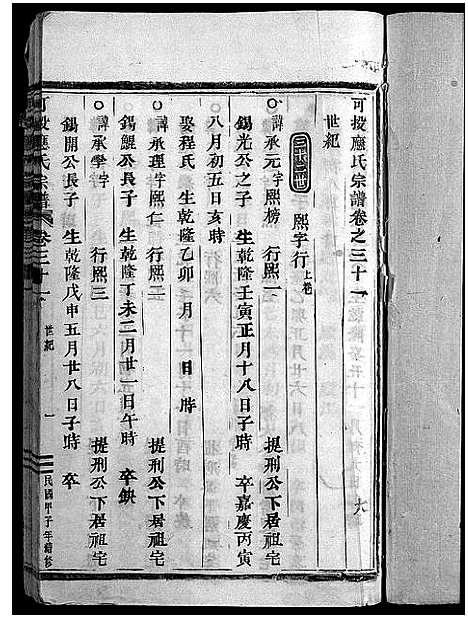 可投應氏宗譜卷之三十一
世紀
三十三世 熙字行上卷
○諱承元字熙榜 行熙一 提刑公下居祖宅
錫光公之子 生乾隆壬寅正月十八日子時 卒嘉慶丙寅
八月初五日亥時
娶程氏 生乾隆乙卯 月 日 時
○諱承理字熙仁 行熙二 提刑公下居祖宅
錫鯤公長子 生乾隆丁未二月廿一日午時 卒缺
○諱承學字 行熙三 提刑公下居祖宅
錫開公長子 生乾隆戊申五月廿八日子時 卒
可投應氏宗譜 卷三十一 世紀 一 民國甲子年續修